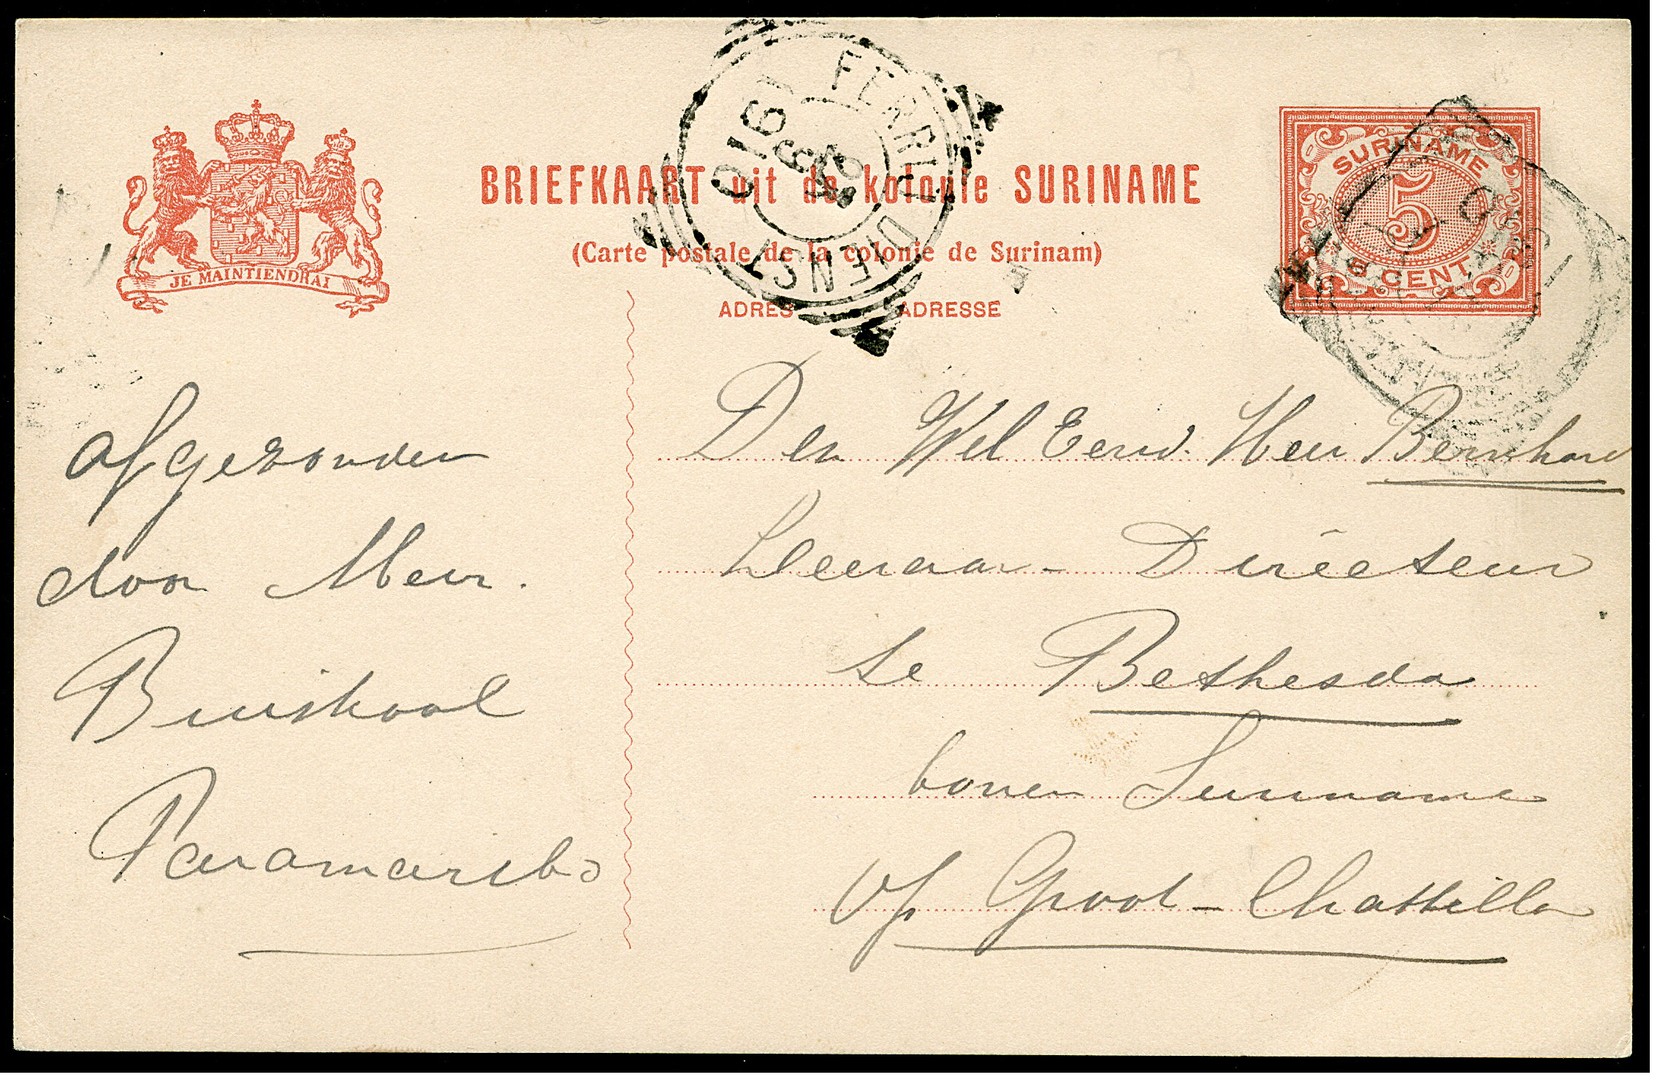 BRIEFKAART uit de kolonie SURINAME
(Carte postale de la colonie de Surinam)
ADRES ADRESSE
JE MAINTIENDRAI
SURINAME
5
5 CENT
1910
DIENST
afgezonden
door Meur.
Buiskool
Paramaribo
Den Wel Eerw. Heer Bernhard
Leeraar - Directeur
te Bethesda
boven Suriname
op Groot - Chattillon